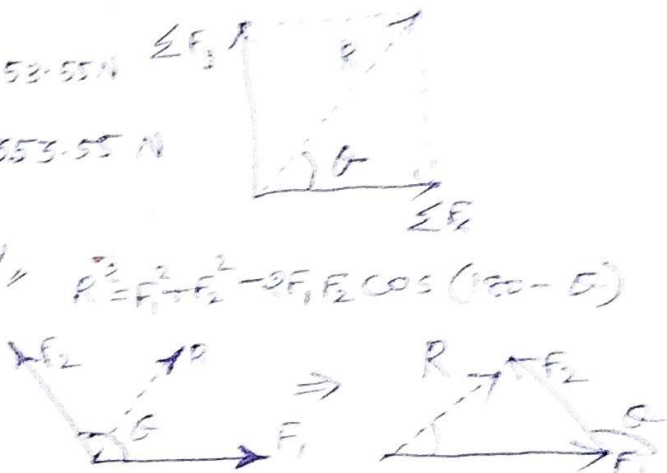 ΣFy
53.55 N
R
553.55 N
θ
ΣFx
R² = F₁² + F₂² - 2F₁F₂ cos (180 - θ)
F₂ R R F₂
⇒
θ F₁ θ F₁